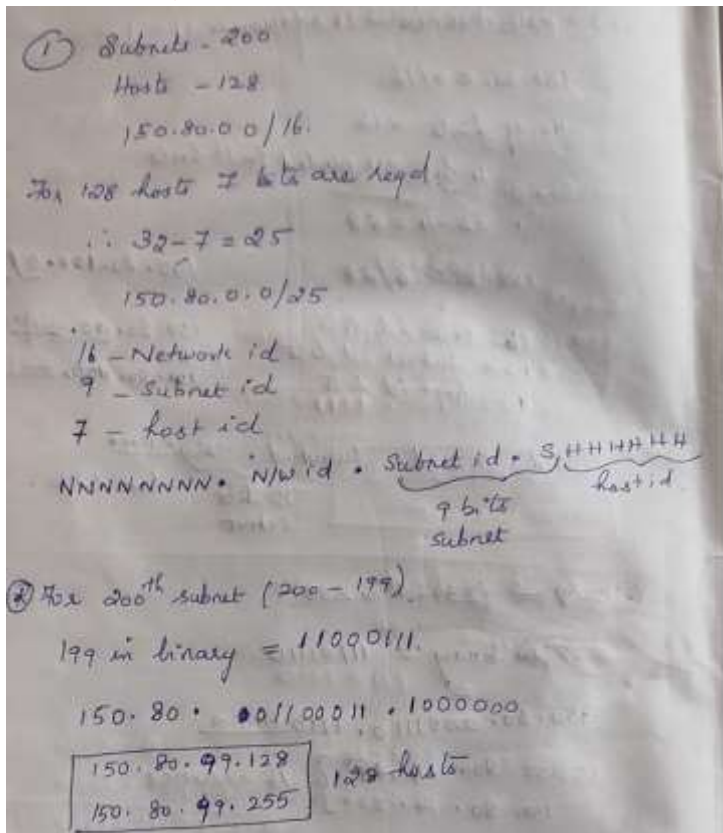 ① Subnets - 200
Hosts - 128
150.80.0 0/16.
For 128 hosts 7 bits are reqd.
∴ 32-7 = 25
150.80.0.0/25
16 - Network id
9 - Subnet id
7 - host id
NNNNNNNN. N/W id. Subnet id. S HHHHHH
host id.
9 bits
subnet
② For 200th subnet (200 - 199).
199 in binary = 11000111.
150.80. 01100011.1000000
150.80.99.128
128 hosts.
150.80.99.255